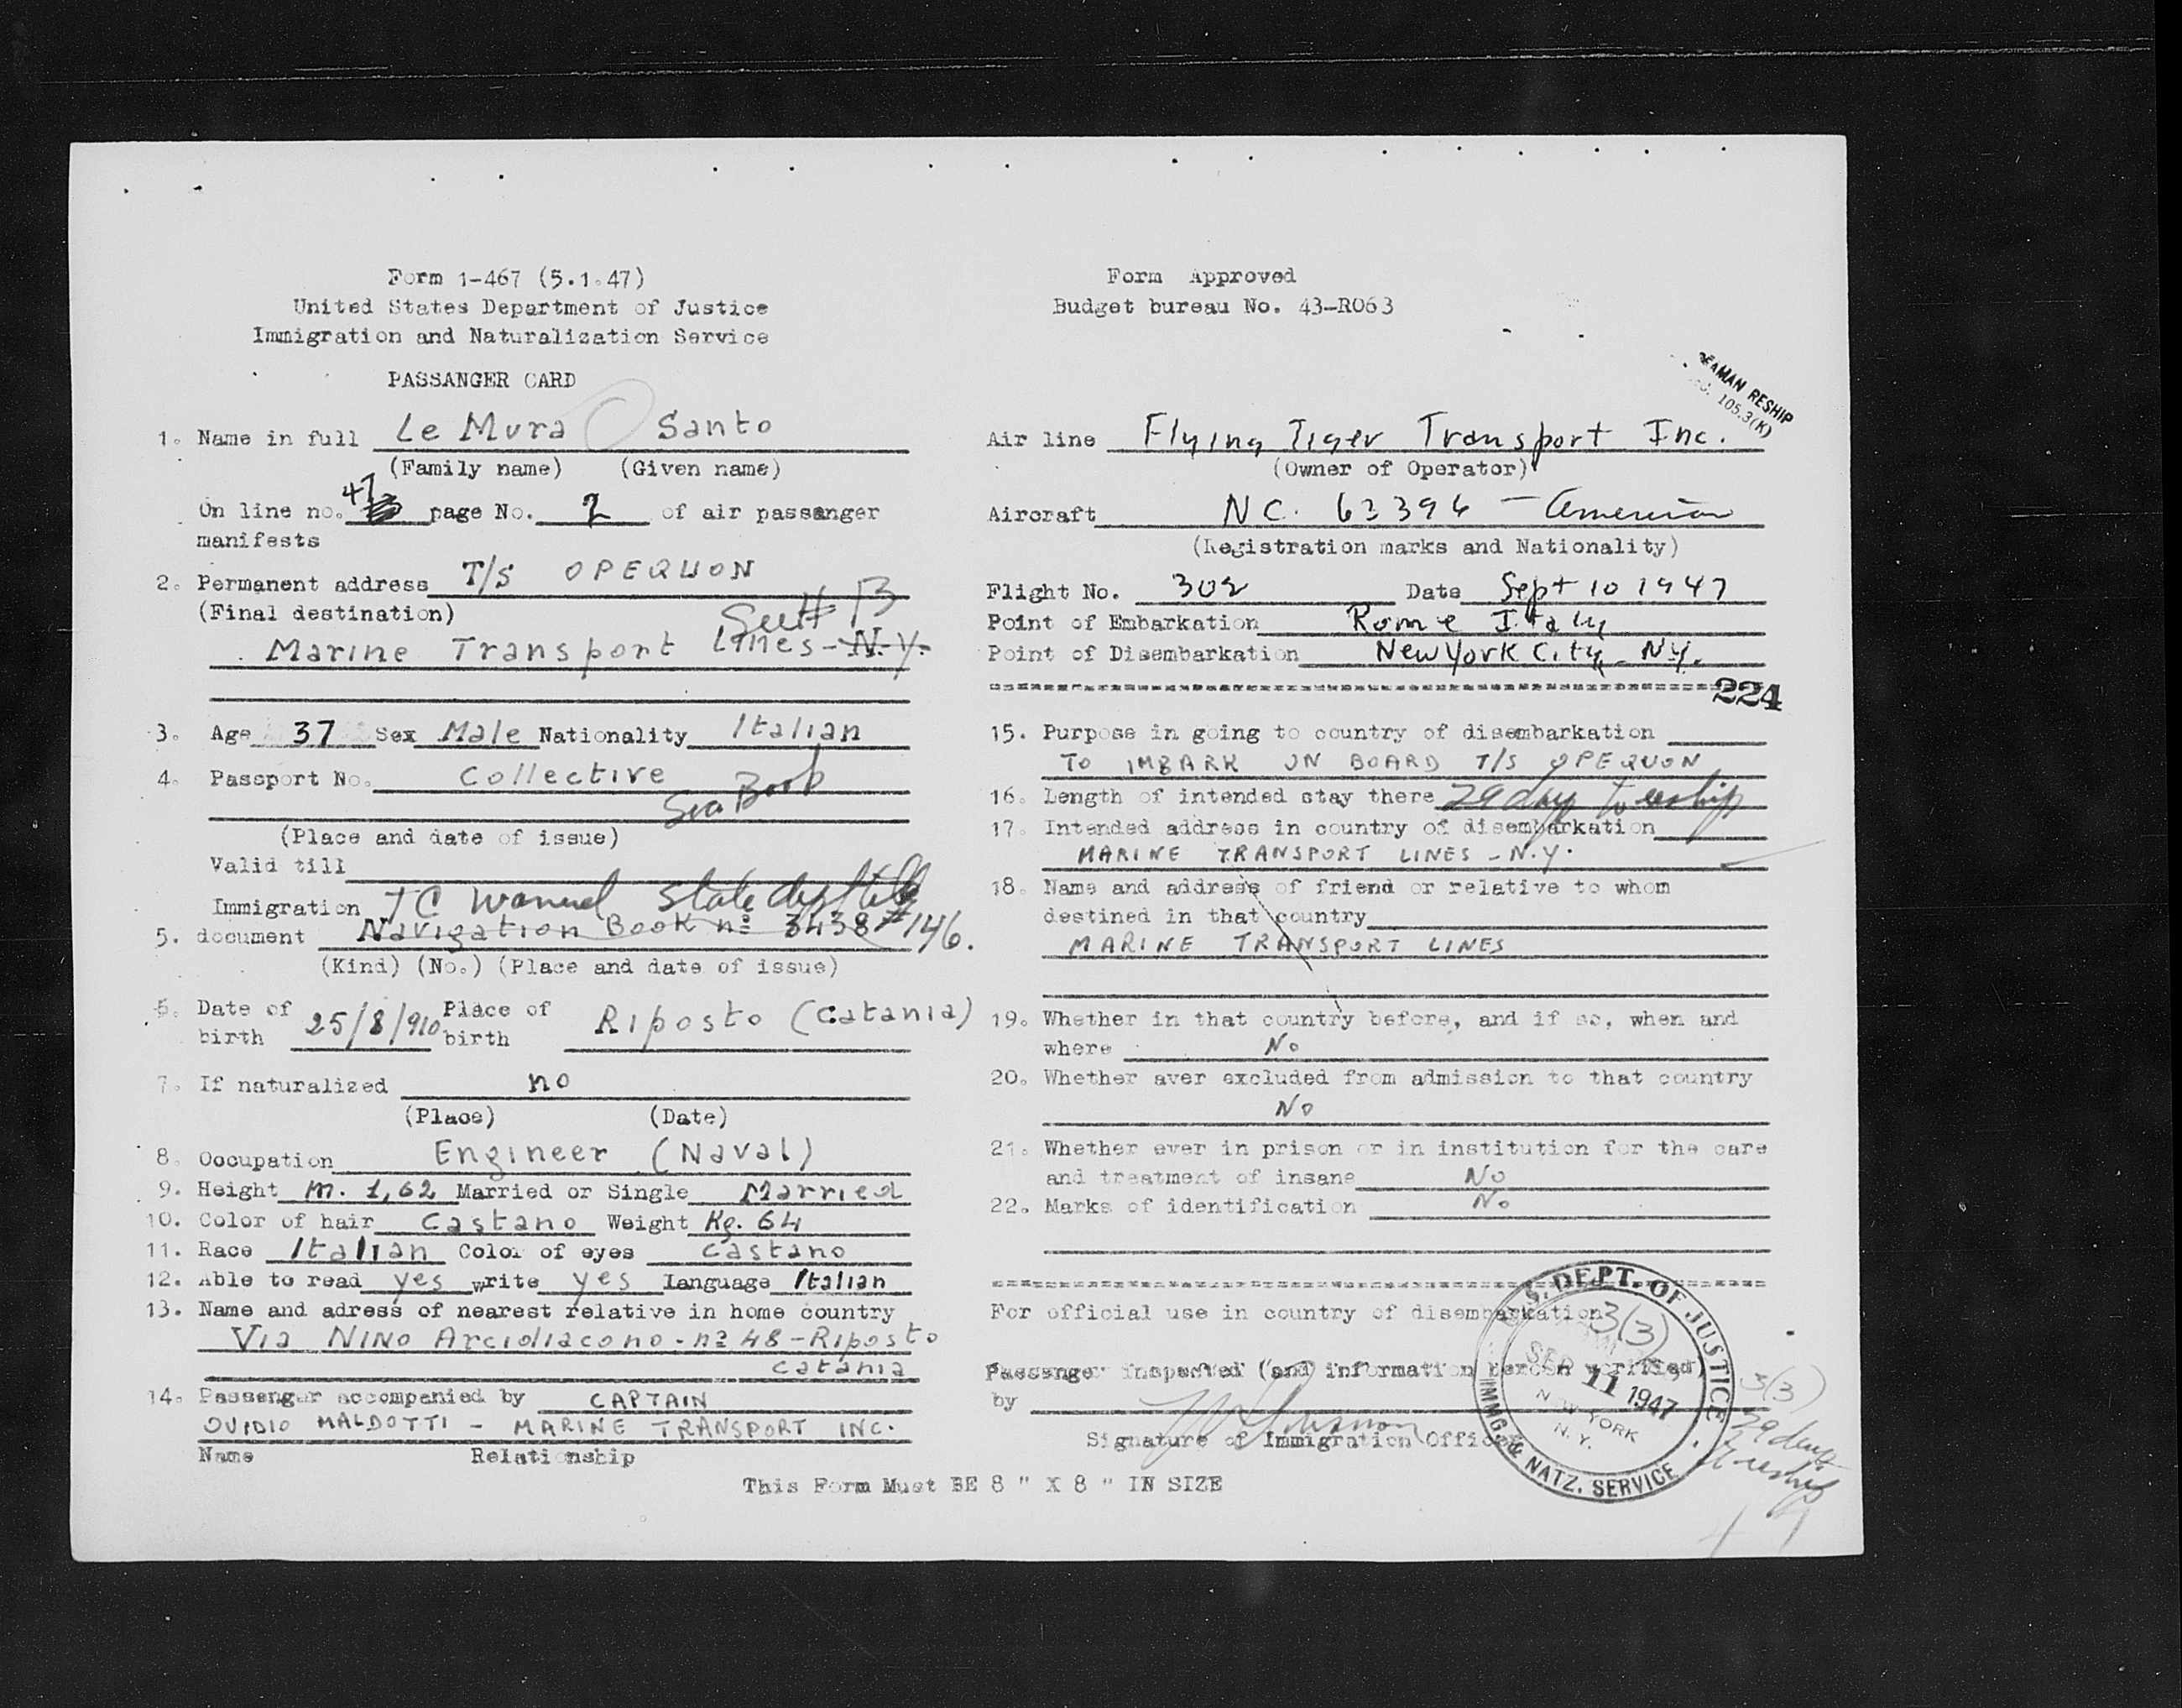 Form 1-467 (5.1.47)
United States Department of Justice
Immigration and Naturalization Service
PASSANGER CARD
1. Name in full Le Mura Santo
(Family name) (Given name)
On line no. 47 page No. 2 of air passanger
manifests
2. Permanent address T/S OPEQUON
(Final destination)
Marine Transport Lines - N.Y.
3. Age 37 Sex Male Nationality Italian
4. Passport No. Collective
Sea Book
(Place and date of issue)
Valid till
Immigration
5. document Navigation Book nº 3438 #146.
(Kind) (No.) (Place and date of issue)
6. Date of birth 25/8/910 Place of birth Riposto (Catania)
7. If naturalized no
(Place) (Date)
8. Occupation Engineer (Naval)
9. Height m. 1,62 Married or Single Married
10. Color of hair Castano Weight Kg. 64
11. Race Italian Color of eyes castano
12. Able to read yes write yes Language Italian
13. Name and adress of nearest relative in home country
Via NINO Arcidiacono - nº 48 - Riposto
Catania
14. Passenger accompanied by CAPTAIN
OVIDIO MALDOTTI - MARINE TRANSPORT INC.
Name Relationship
Form Approved
Budget bureau No. 43-R063
SEAMAN RESHIP
105.3(K)
Air line Flying Tiger Transport Inc.
(Owner of Operator)
Aircraft N C. 63396 - American
(Registration marks and Nationality)
Flight No. 302 Date Sept 10 1947
Point of Embarkation Rome Italy
Point of Disembarkation New York City - N.Y.
224
15. Purpose in going to country of disembarkation
TO IMBARK ON BOARD T/S OPEQUON
16. Length of intended stay there 29 days to reship
17. Intended address in country of disembarkation
MARINE TRANSPORT LINES - N.Y.
18. Name and address of friend or relative to whom
destined in that country
MARINE TRANSPORT LINES
19. Whether in that country before, and if so, when and
where No
20. Whether aver excluded from admission to that country
No
21. Whether ever in prison or in institution for the care
and treatment of insane No
22. Marks of identification No
For official use in country of disembarkation 3(3)
Passenger inspected (and information hereon verified)
by
Signature of Immigration Officer
U.S. DEPT. OF JUSTICE
SEP 11 1947
NEW YORK
N. Y.
IMMG. & NATZ. SERVICE
3(3)
29 days
to reship
This Form Must BE 8 " X 8 " IN SIZE